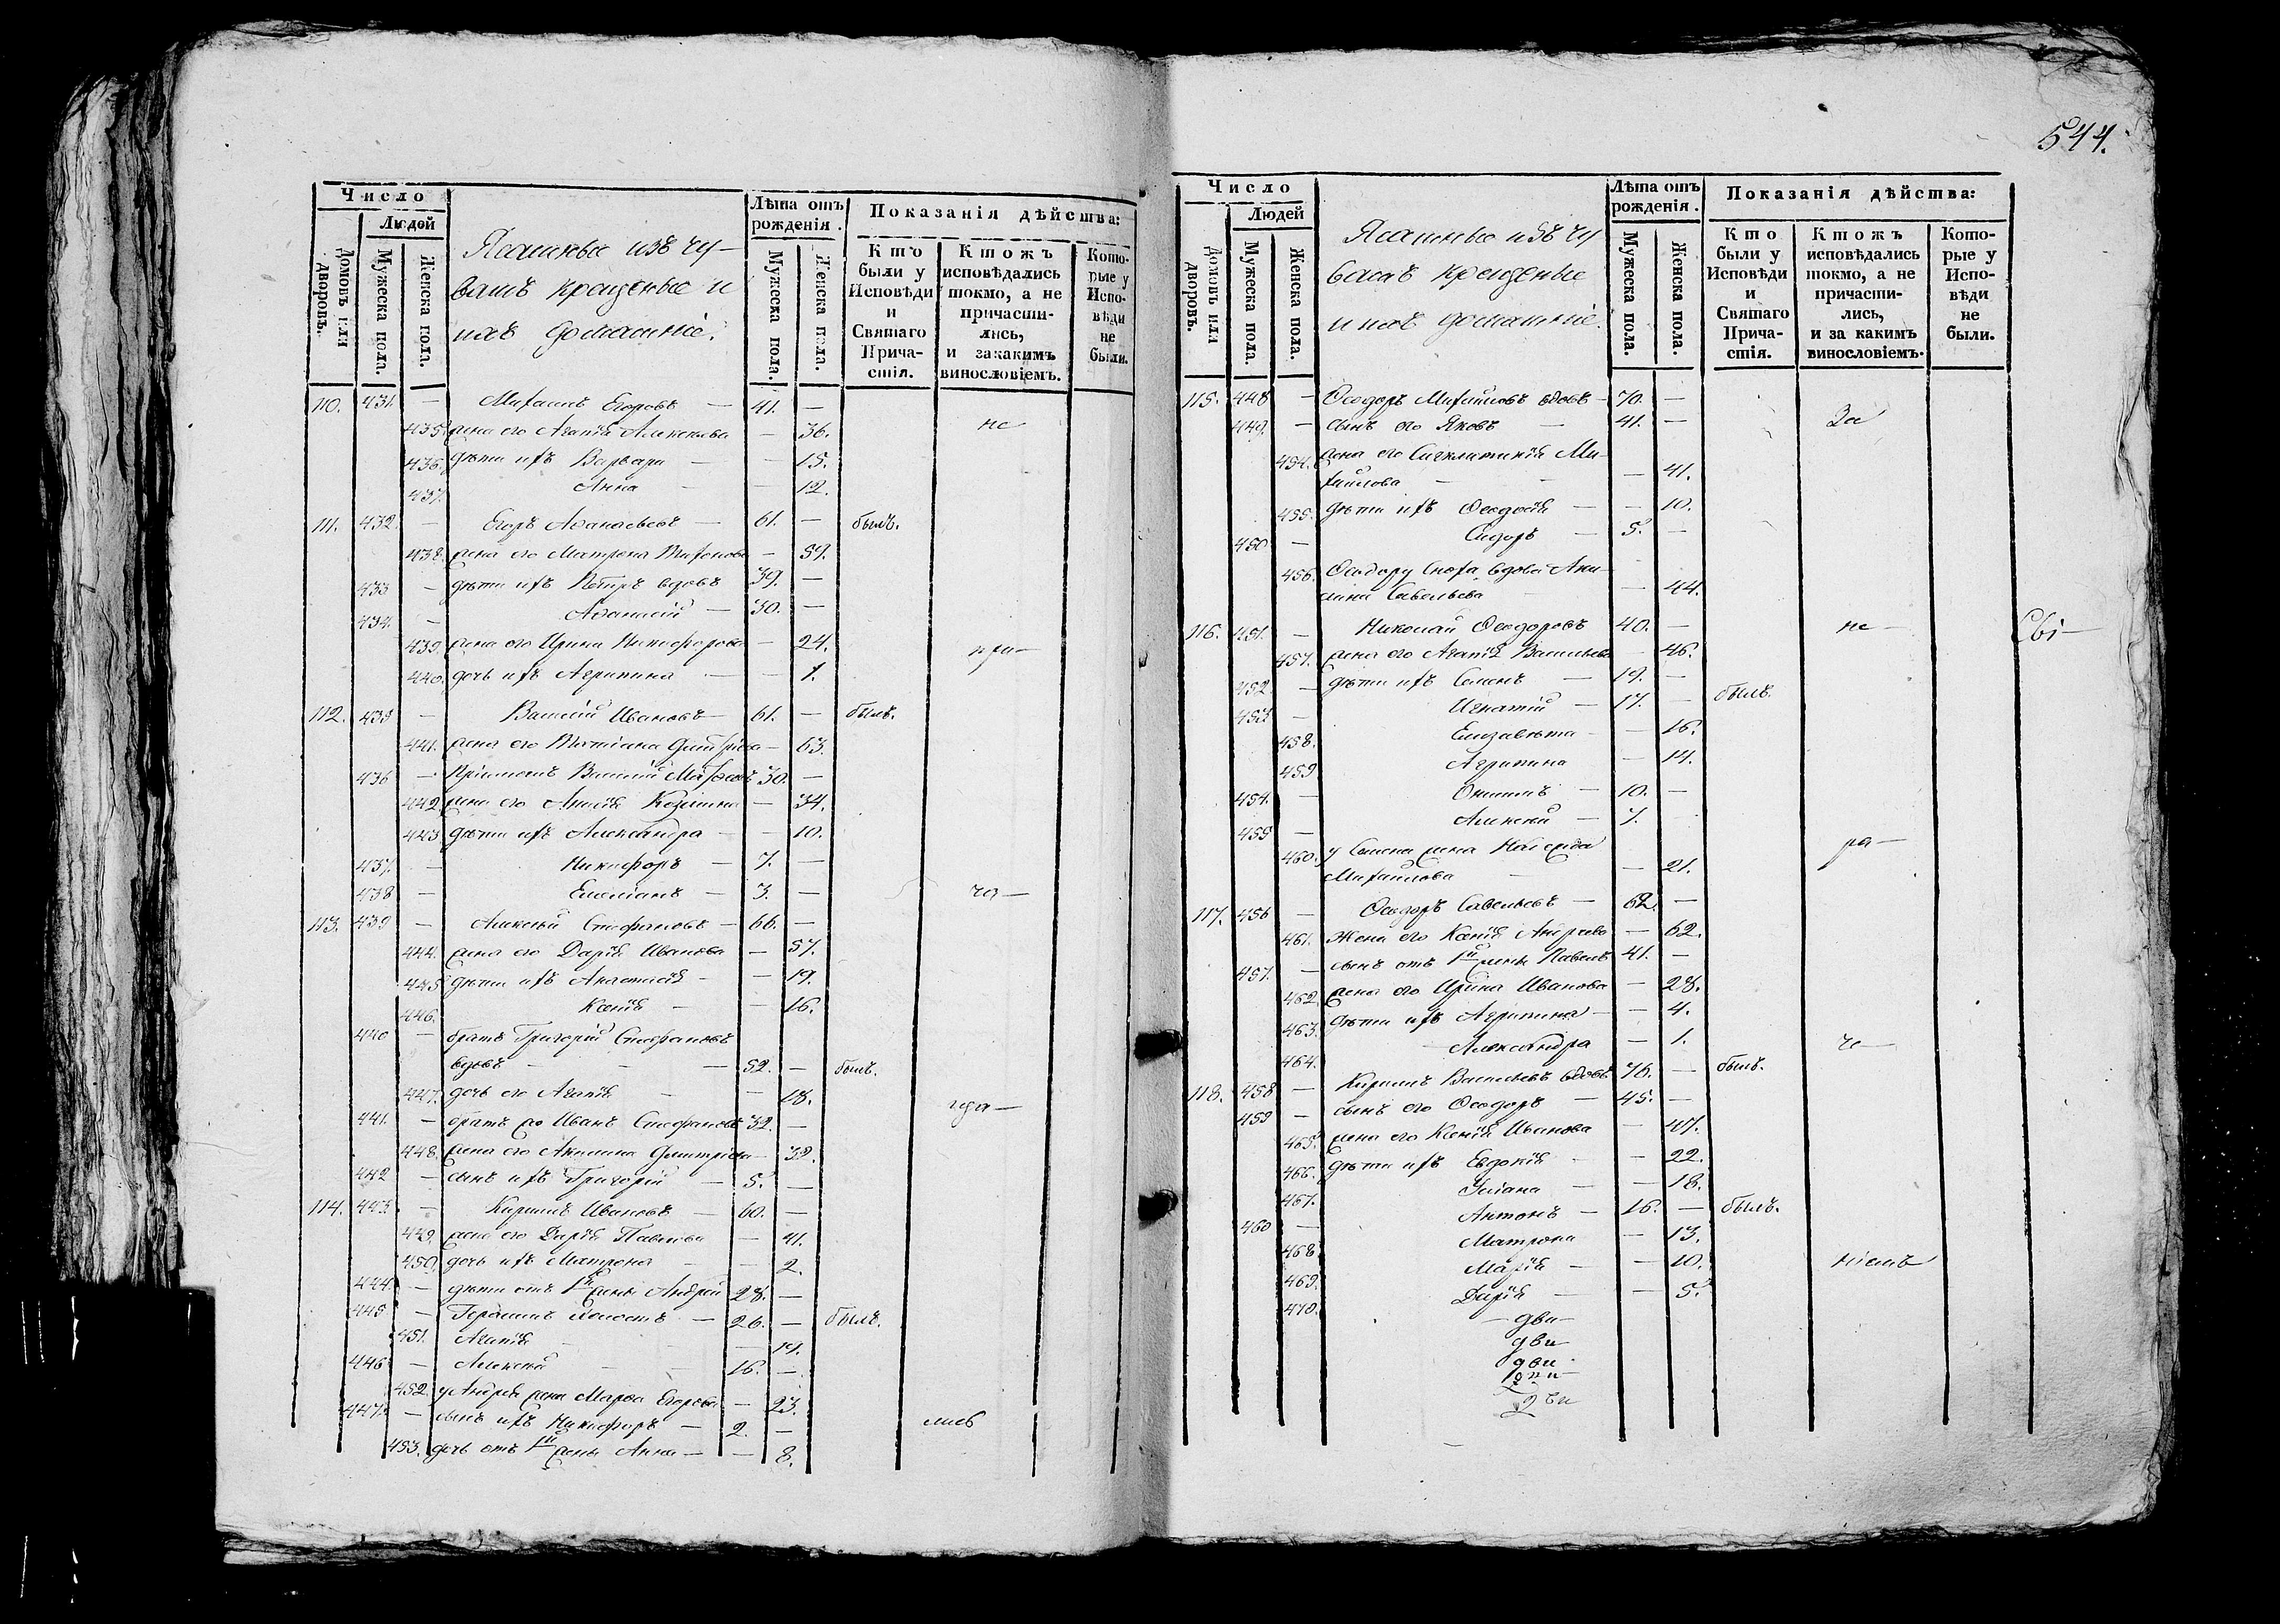 544.
Число
Людей
Домовъ или дворовъ.
Мужеска пола.
Женска пола.
Ясашные изъ чу-
вашъ крещеные и
ихъ домашніе.
Лѣта отъ рожденія.
Мужеска пола.
Женска пола.
Показанія дѣйства:
Кто были у Исповѣди и Святаго Причастія.
Ктожъ исповѣдались токмо, а не причастились, и за какимъ винословіемъ.
Которые у Исповѣди не были.
110. 431. — Михаилъ Егоровъ — 41. —
435. жена его Агапія Алексеева — 36. не
436. дѣти ихъ Варвара — — 15.
437. Анна — — 12.
111. 432 — Егоръ Аѳанасьевъ — 61. — былъ.
438. жена его Матрона — 59.
433 — дѣти ихъ Петръ вдовъ 39. —
434. — Аѳанасій — 30. —
439. жена его Ирина Никифорова — 24. при—
440. дочь ихъ Агрипина — — 1.
112. 435 — Василій Ивановъ — 61. — былъ.
441. жена его Татіана Дмитріева — 63.
436 — Пріимышъ Василій 30. —
442. жена его Анисія Козмина — 34.
443. дѣти ихъ Александра — — 10.
437. — Никифоръ — 7. —
438 — Емеліанъ — 3. — ча—
113. 439 — Алексей Стефановъ — 66. —
444. жена его Дарія Иванова — 57.
445 дѣти ихъ Анастасія — — 19.
446. Ксенія — — 16.
440 — братъ Григорій Стефановъ
вдовъ — — — 52. — былъ.
447. дочь его Агапія — — 18. ща—
441. — братъ его Иванъ Стефановъ 32. —
448. жена его Акилина Дмитріева — 32.
442 — сынъ ихъ Григорій — 5. —
114. 443. — Кирилъ Ивановъ — 60. —
449. жена его Дарія Павлова — 41.
450. дочь ихъ Матрона — — 2.
444. — дѣти отъ 1й жены Андрей 28. —
445 — Герасимъ холостъ — 26. — былъ.
451. Агапія — — 19.
446 — Алексей — — 16. —
452. у Андрея жена Марѳа Егорова — 23.
447. — сынъ ихъ Никифоръ — 2. — лись
453. дочь отъ 1й жены Анна — — 8.
Число
Людей
Домовъ или дворовъ.
Мужеска пола.
Женска пола.
Ясашные изъ чу
вашъ крещеные
и ихъ домашніе.
Лѣта отъ рожденія.
Мужеска пола.
Женска пола.
Показанія дѣйства:
Кто были у Исповѣди и Святаго Причастія.
Ктожъ исповѣдались токмо, а не причастились, и за какимъ винословіемъ.
Которые у Исповѣди не были.
115. 448 — Ѳеодоръ Михайловъ вдовъ — 70. —
449. — сынъ его Яковъ — 41. — За
454. жена его Сигклитикія Ми-
хайлова — — — 41.
455. дѣти ихъ Ѳеодосія — — 10.
450 — Сидоръ — 5. —
456. Ѳеодору сноха вдова Аки-
лина Савельева — 44.
116. 451. — Николай Ѳеодоровъ 40. — не — Сві—
457. жена его Агапія Васильева — 46.
452 — дѣти ихъ Семенъ — 19. —
453 — Игнатій — 17. — былъ.
458. Елизавета — — 16.
459. Агрипина — 14.
454. — Онисимъ — 10. —
455 — Алексей — 7. ра—
460. у Семена жена
Михайлова — — 21.
117. 456 — Ѳеодоръ Савельевъ — 62. —
461. Жена его Ксенія — 62.
457. — сынъ отъ 1й жены Павелъ 41. —
462. жена его Ирина Иванова — 28.
463. дѣти ихъ Агрипина — — 4.
464. Александра — 1. че—
118. 458 — Кирилъ Васильевъ вдовъ 76. — былъ.
459 — сынъ его Ѳеодоръ — 45. —
465. жена его Ксенія Иванова — 47.
466. дѣти ихъ Евдокія — — 22.
467. Уліана — — 18.
460 — Антонъ — 16. — былъ.
468. Матрона — 13.
469. Марія — — 10. ніемъ
470. Дарія — — 5.
— дви—
дви
дви
дви